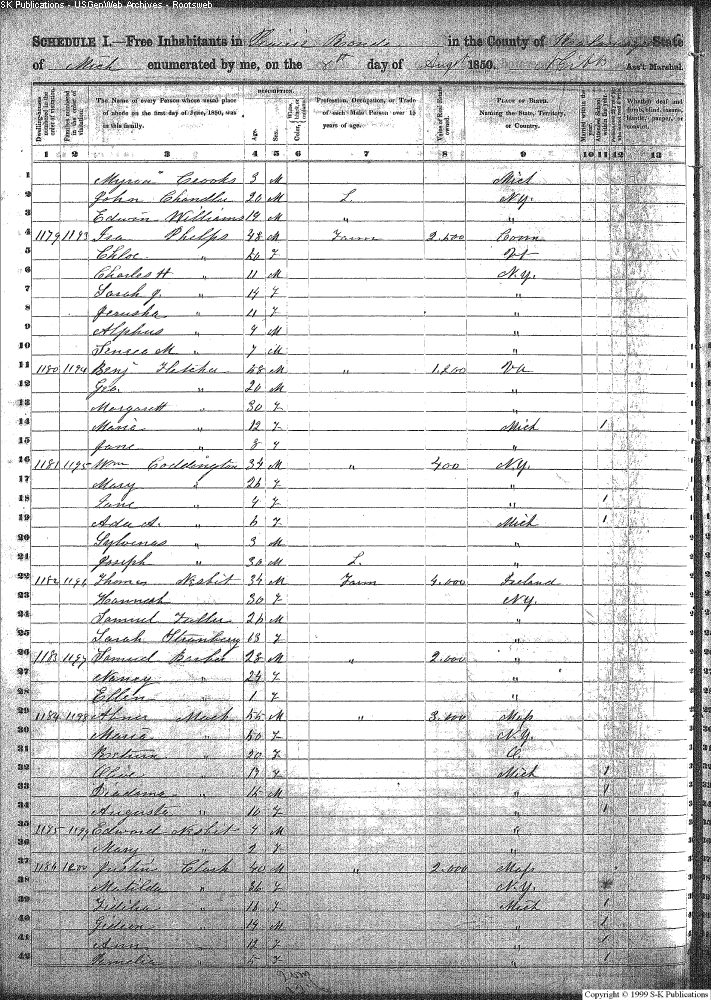 SK Publications - USGenWeb Archives - Rootsweb
SCHEDULE I.—Free Inhabitants in Prairie Ronde in the County of Kalamazoo State
of Mich enumerated by me, on the day of Augt 1850. Ass't Marshal.
Dwelling-houses numbered in the order of visitation.
Families numbered in the order of visitation.
The Name of every Person whose usual place of abode on the first day of June, 1850, was in this family.
DESCRIPTION.
Age.
Sex.
Color,
Profession, Occupation, or Trade of each Male Person over 15 years of age.
Value of Real Estate owned.
PLACE OF BIRTH. Naming the State, Territory, or Country.
Married within the year.
Attended School within the year.
Whether deaf and dumb, blind, insane, idiotic, pauper, or convict.
1 2 3 4 5 6 7 8 9 10 11 12 13
1 Myron Crooks 3 M Mich
2 John Chandler 20 M L. N.Y.
3 Edwin Williams 19 M " "
4 1179 1193 Ira Phelps 48 M Farm Conn
5 Chloe " F Vt
6 Charles H " 11 M N.Y.
7 Sarah J. " 14 F "
8 Jerusha " 11 F "
9 Alpheus " 9 M "
10 Seneca M " 7 M "
11 1180 1194 Benj Fletcher 48 M " 1,200 Va
12 Geo. " 20 M "
13 Margarett " 30 F "
14 Maria " 12 F Mich 1
15 Jane " 8 F "
16 1181 1195 Wm Coddington 34 M " 400 N.Y.
17 Mary " 26 F "
18 Jane " 9 F " 1
19 Ada A. " 6 F Mich 1
20 Sylvenas " 3 M "
21 Joseph " 30 M L. "
22 1182 1196 Thomas Nesbit 34 M Farm 4.000 Ireland
23 Hannah " 30 F N.Y.
24 Samuel Fuller 26 M "
25 Sarah 18 F "
26 1183 1197 Samuel Barber 28 M " 2.000 "
27 Nancy " 24 F "
28 Ellen " 1 F "
29 1184 1198 Abner Mack 55 M " Mass
30 Maria " 50 F N.Y.
31 20 F O.
32 Olive " 17 F Mich 1
33 Diadama " 15 M " 1
34 Augusta " 10 F " 1
35 1185 1199 Edward Nesbit 4 M "
36 Mary " 2 F "
37 1186 1200 Justin Clark 40 M " 2.000 Mass
38 Matilda " 36 F N.Y.
39 Fidilia " 16 F Mich 1
40 Gideon " 14 M " 1
41 Ann " 12 F " 1
42 Pamelia " 5 F " 1
Copyright © 1999 S-K Publications